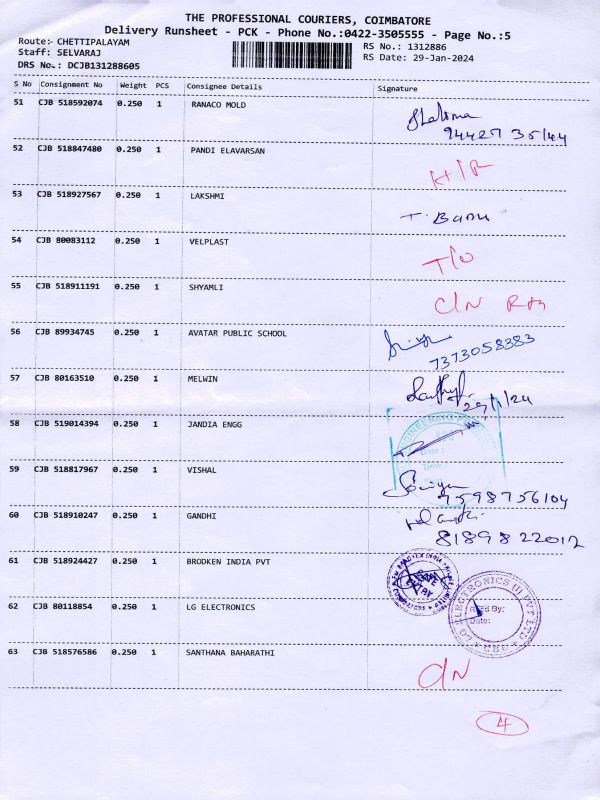 THE PROFESSIONAL COURIERS, COIMBATORE
Delivery Runsheet - PCK - Phone No.:0422-3505555 - Page No.:5
Route:- CHETTIPALAYAM
Staff: SELVARAJ
DRS No.: DCJB131288605
RS No.: 1312886
RS Date: 29-Jan-2024
S No Consignment No Weight PCS Consignee Details Signature
51 CJB 518592074 0.250 1 RANACO MOLD
94427 35144
52 CJB 518847480 0.250 1 PANDI ELAVARSAN
53 CJB 518927567 0.250 1 LAKSHMI
T. BANU
54 CJB 80083112 0.250 1 VELPLAST
T/O
55 CJB 518911191 0.250 1 SHYAMLI
C/N
56 CJB 89934745 0.250 1 AVATAR PUBLIC SCHOOL
7373058383
57 CJB 80163510 0.250 1 MELWIN
29/1/24
58 CJB 519014394 0.250 1 JANDIA ENGG
Date:
Time:
59 CJB 518817967 0.250 1 VISHAL
9598756104
60 CJB 518910247 0.250 1 GANDHI
81898 22012
61 CJB 518924427 0.250 1 BRODKEN INDIA PVT
62 CJB 80118854 0.250 1 LG ELECTRONICS
LG ELECTRONICS (I) PVT LTD
Recd By:
Date:
63 CJB 518576586 0.250 1 SANTHANA BAHARATHI
C/N
4